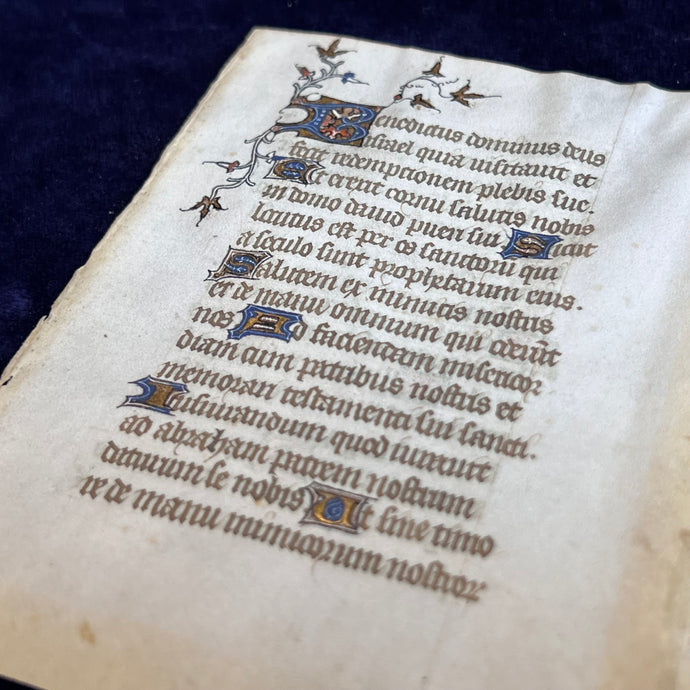 Benedictus dominus deus
israel quia visitavit et
fecit redempcionem plebis sue.
Et erexit cornu salutis nobis
in domo david pueri sui. Sicut
locutus est per os sanctorū qui
a seculo sunt prophetarum eius.
Salutem ex inimicis nostris
et de manu omnium qui oderūt
nos Ad faciendam misericor
diam cum patribus nostris et
memorari testamenti sui sancti.
Iusiurandum quod iuravit
ad abraham patrem nostrum
daturum se nobis Ut sine timo
re de manu inimicorum nostror